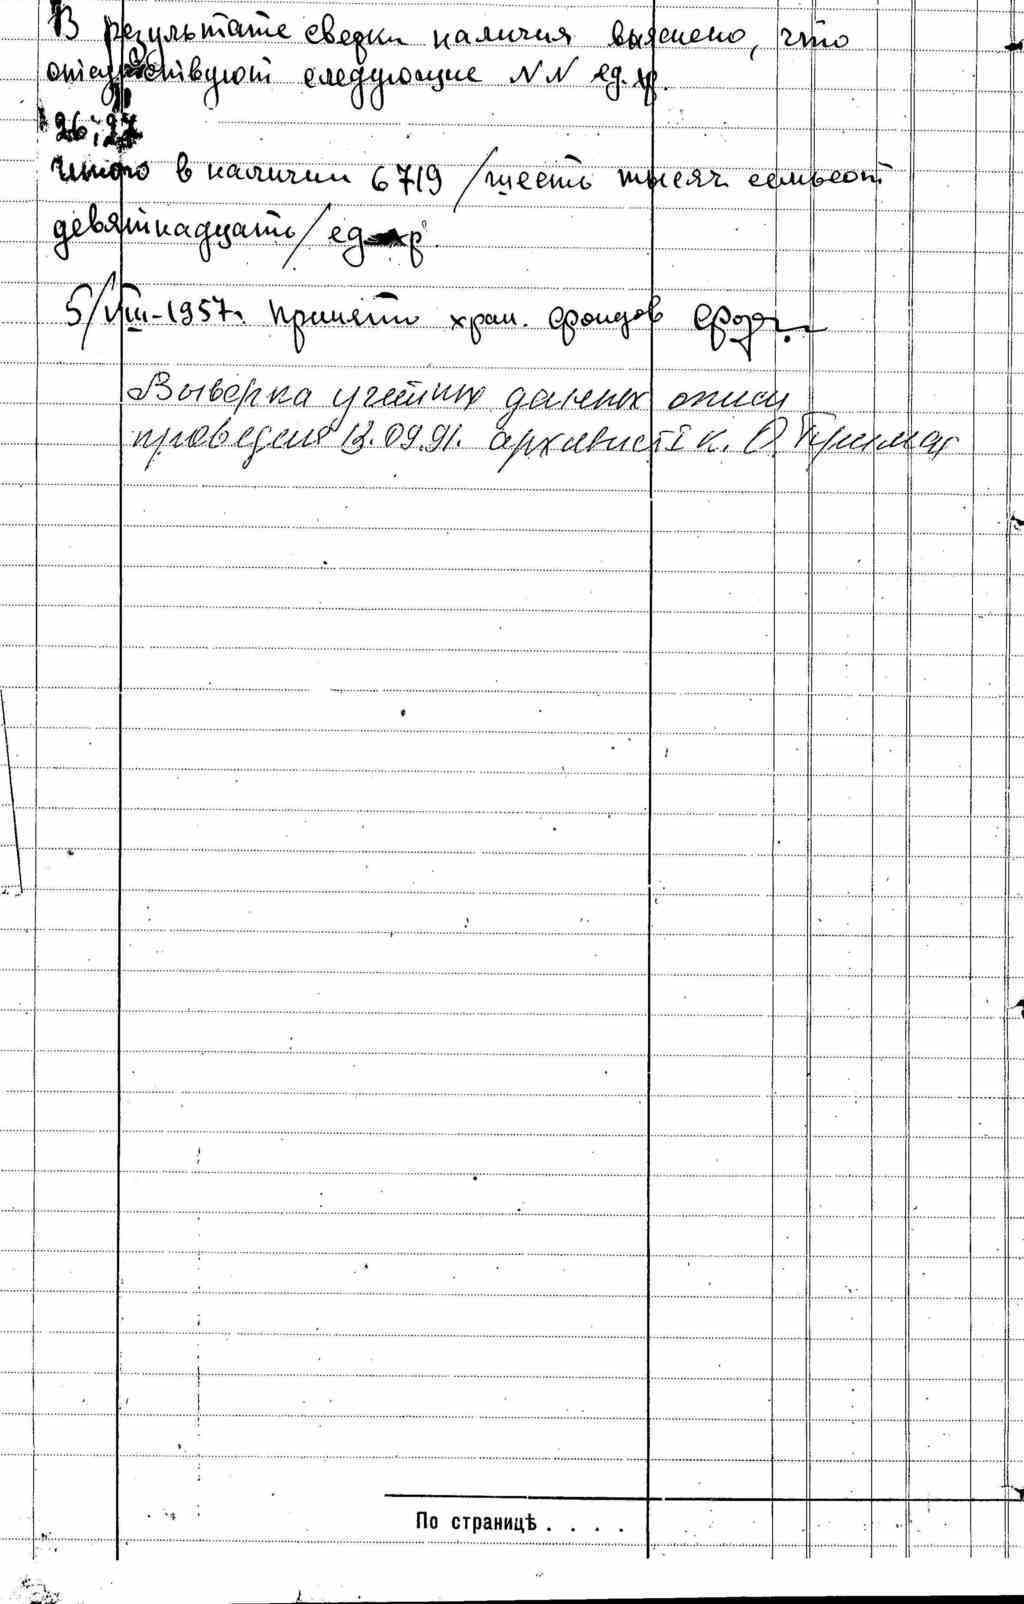 В результате сверки наличия выяснено, что
отсутствуют следующие NN ед. хр.
26; 27
Итого в наличии 6719 /шесть тысяч семьсот
девятнадцать/ ед. хр.
5/VIII-1957г. хран. фондов
Выверка учетных данных описи
проведена 13.09.91. архивист I к. О.
По страницѣ . . . .